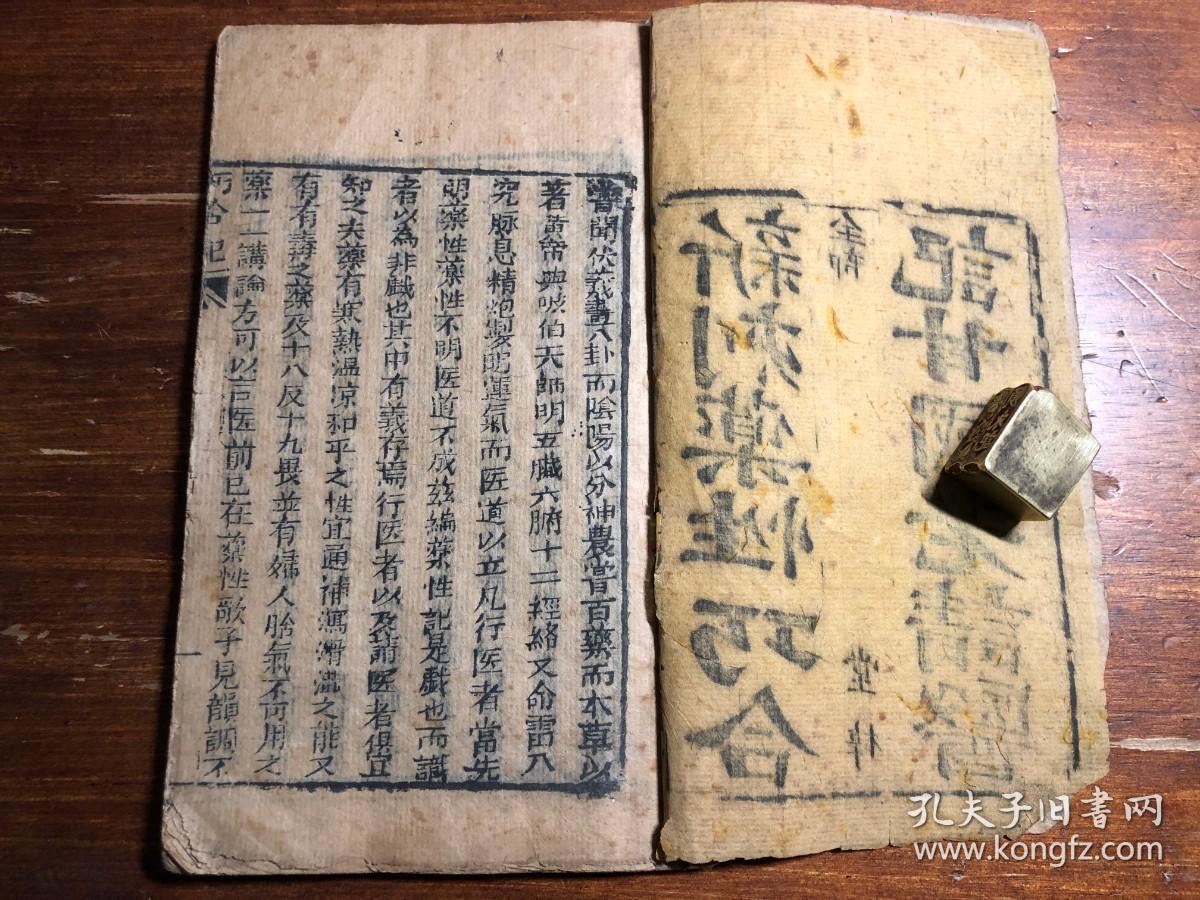 嘗聞伏羲畫八卦而陰陽以分神農嘗百藥而本草以
著黃帝與岐伯天師明五臟六腑十二經絡又命雷八
究脉息精炮製明運氣而医道以立凡行医者當先
明藥性藥性不明医道不成玆編藥性記是戲也而識
者以為非戲也其中有義存焉行医者以及請医者俱宜
知之夫藥有寒熱温凉和平之性宜通補瀉滑濇之能又
有有毒之藥及十八反十九畏並有婦人胎氣不可用之
藥一一講論方可以言医前已在藥性
巧合記
新刻藥性巧合
記甘國老
全部
堂梓
孔夫子旧书网
www.kongfz.com